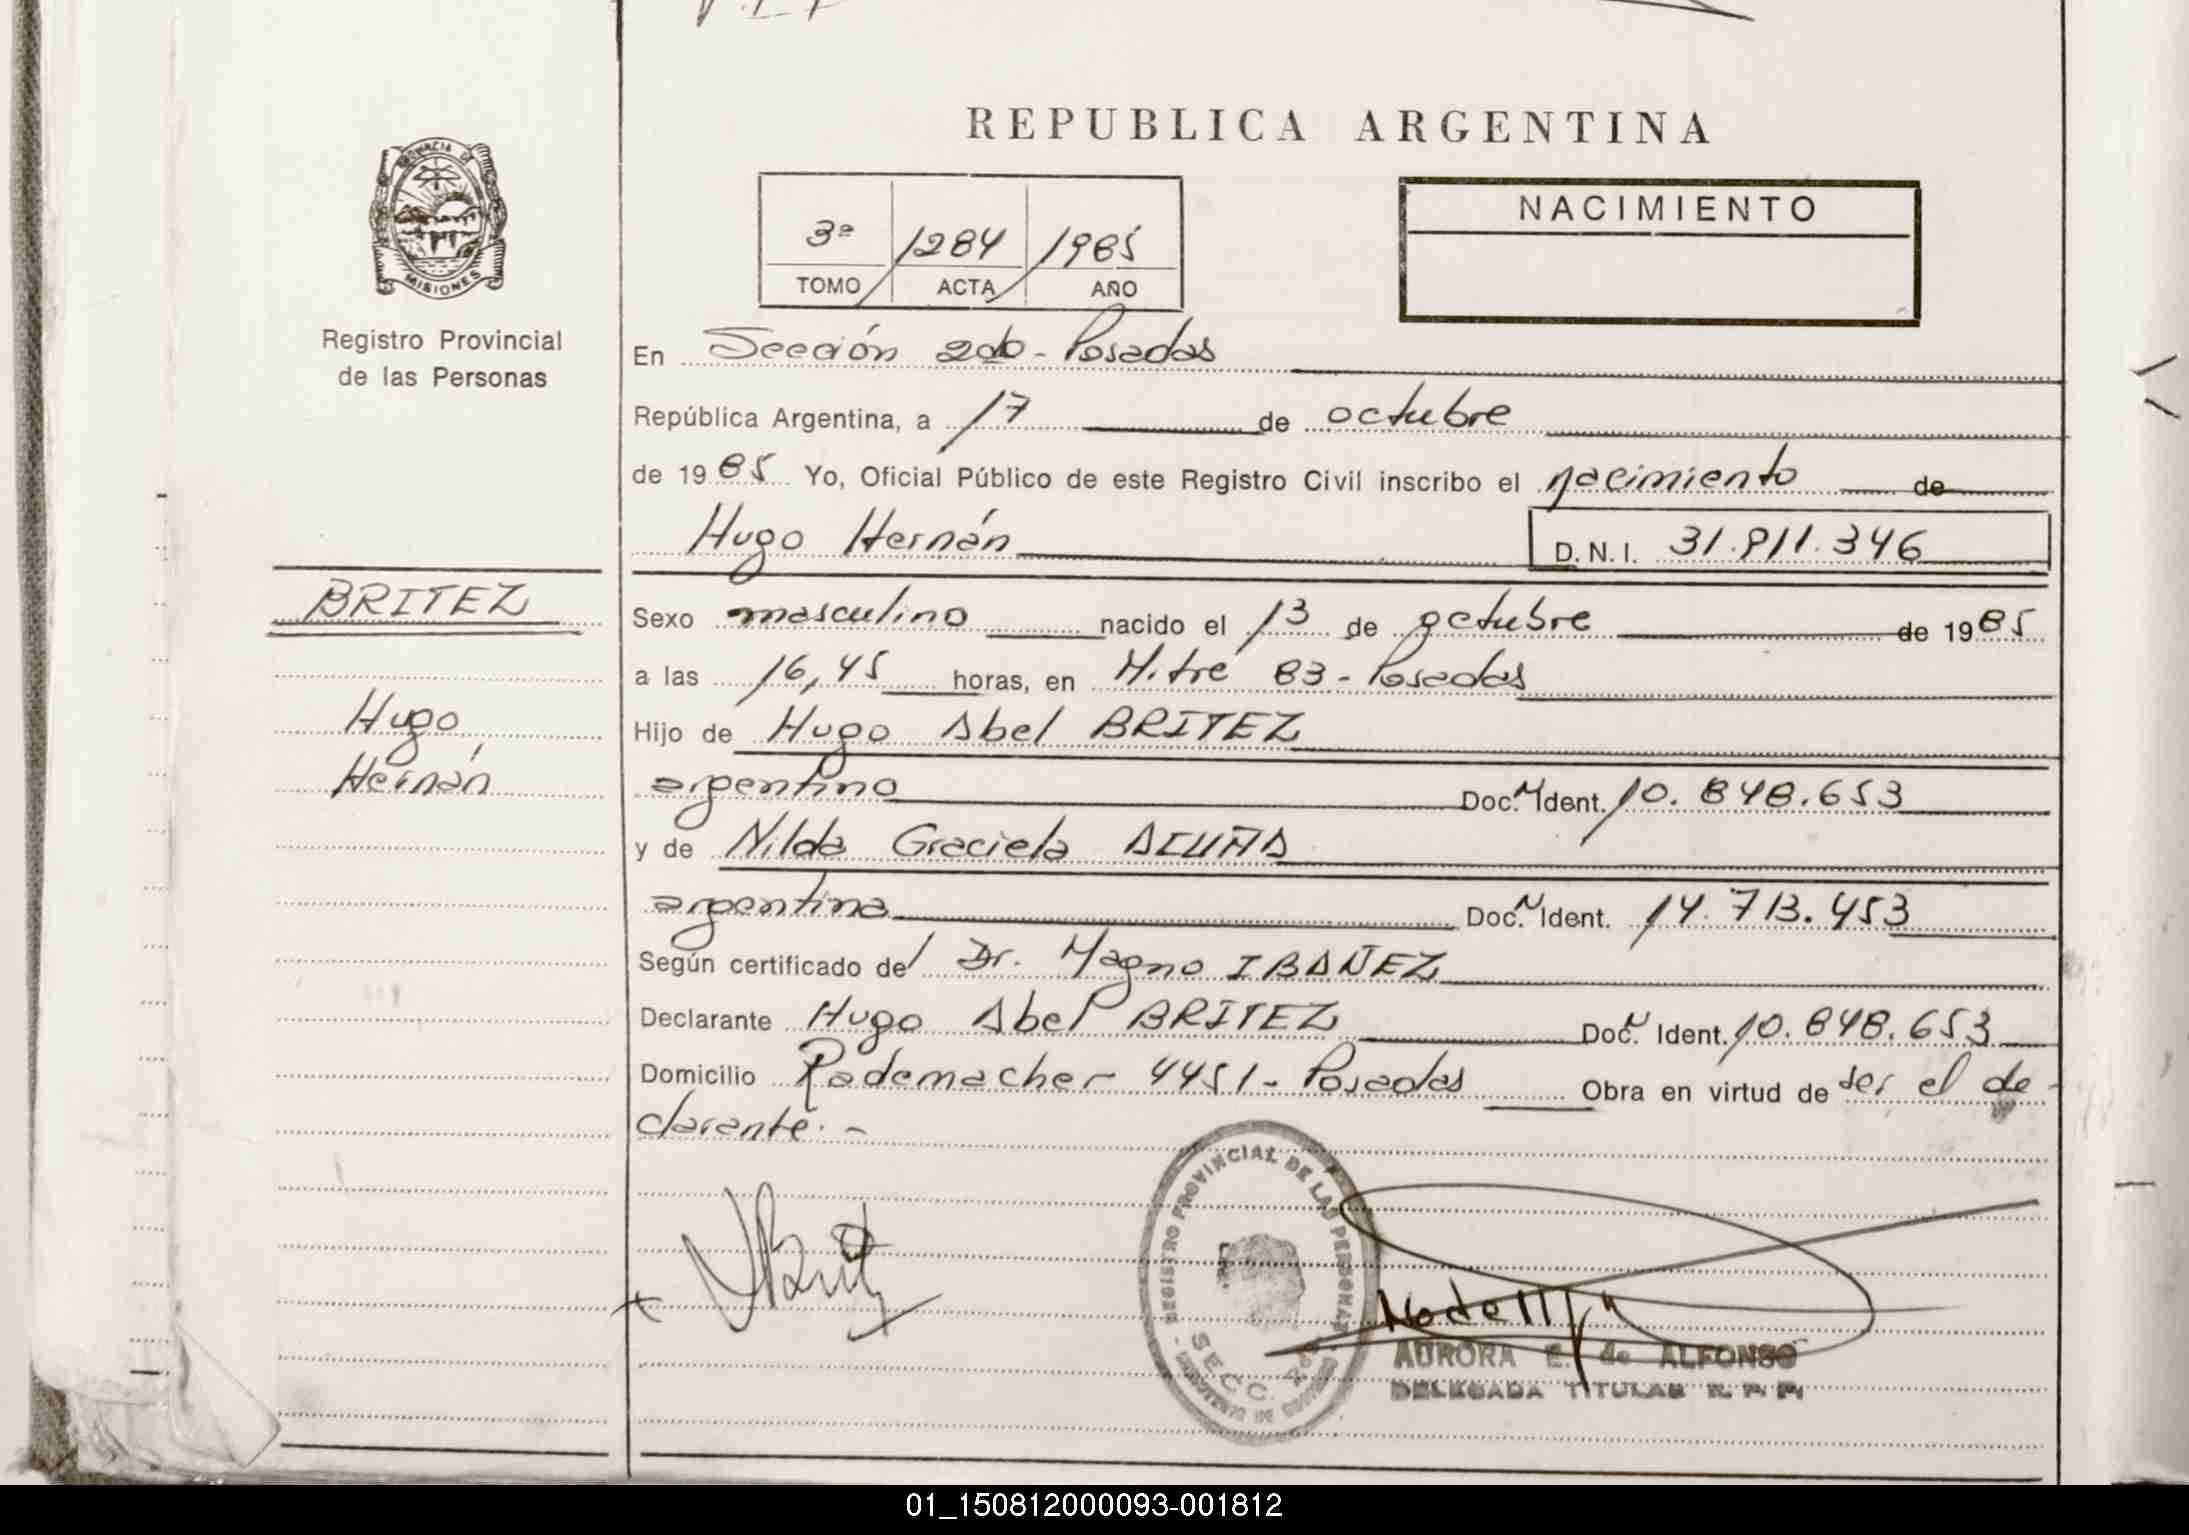 REPUBLICA ARGENTINA
PROVINCIA DE
MISIONES
Registro Provincial
de las Personas
3ª 1284 1985
TOMO ACTA AÑO
NACIMIENTO
En Sección 2da - Posadas
República Argentina, a 17 de octubre
de 1985 Yo, Oficial Público de este Registro Civil inscribo el nacimiento de
Hugo Hernán D.N.I. 31.911.346
BRITEZ
Hugo
Hernán
Sexo masculino nacido el 13 de octubre de 1985
a las 16,45 horas, en Mitre 83 - Posadas
Hijo de Hugo Abel BRITEZ
argentino Doc. N Ident. 10.848.653
y de Nilda Graciela ACUÑA
argentina Doc. N Ident. 14.713.453
Según certificado del Dr. Magno IBAÑEZ
Declarante Hugo Abel BRITEZ Doc. N Ident. 10.848.653
Domicilio Rademacher 4451 - Posadas Obra en virtud de ser el de-
clarante. -
REGISTRO PROVINCIAL DE LAS PERSONAS
SECC.
AURORA E. de ALFONSO
DELEGADA TITULAR R. P. P.
01_150812000093-001812